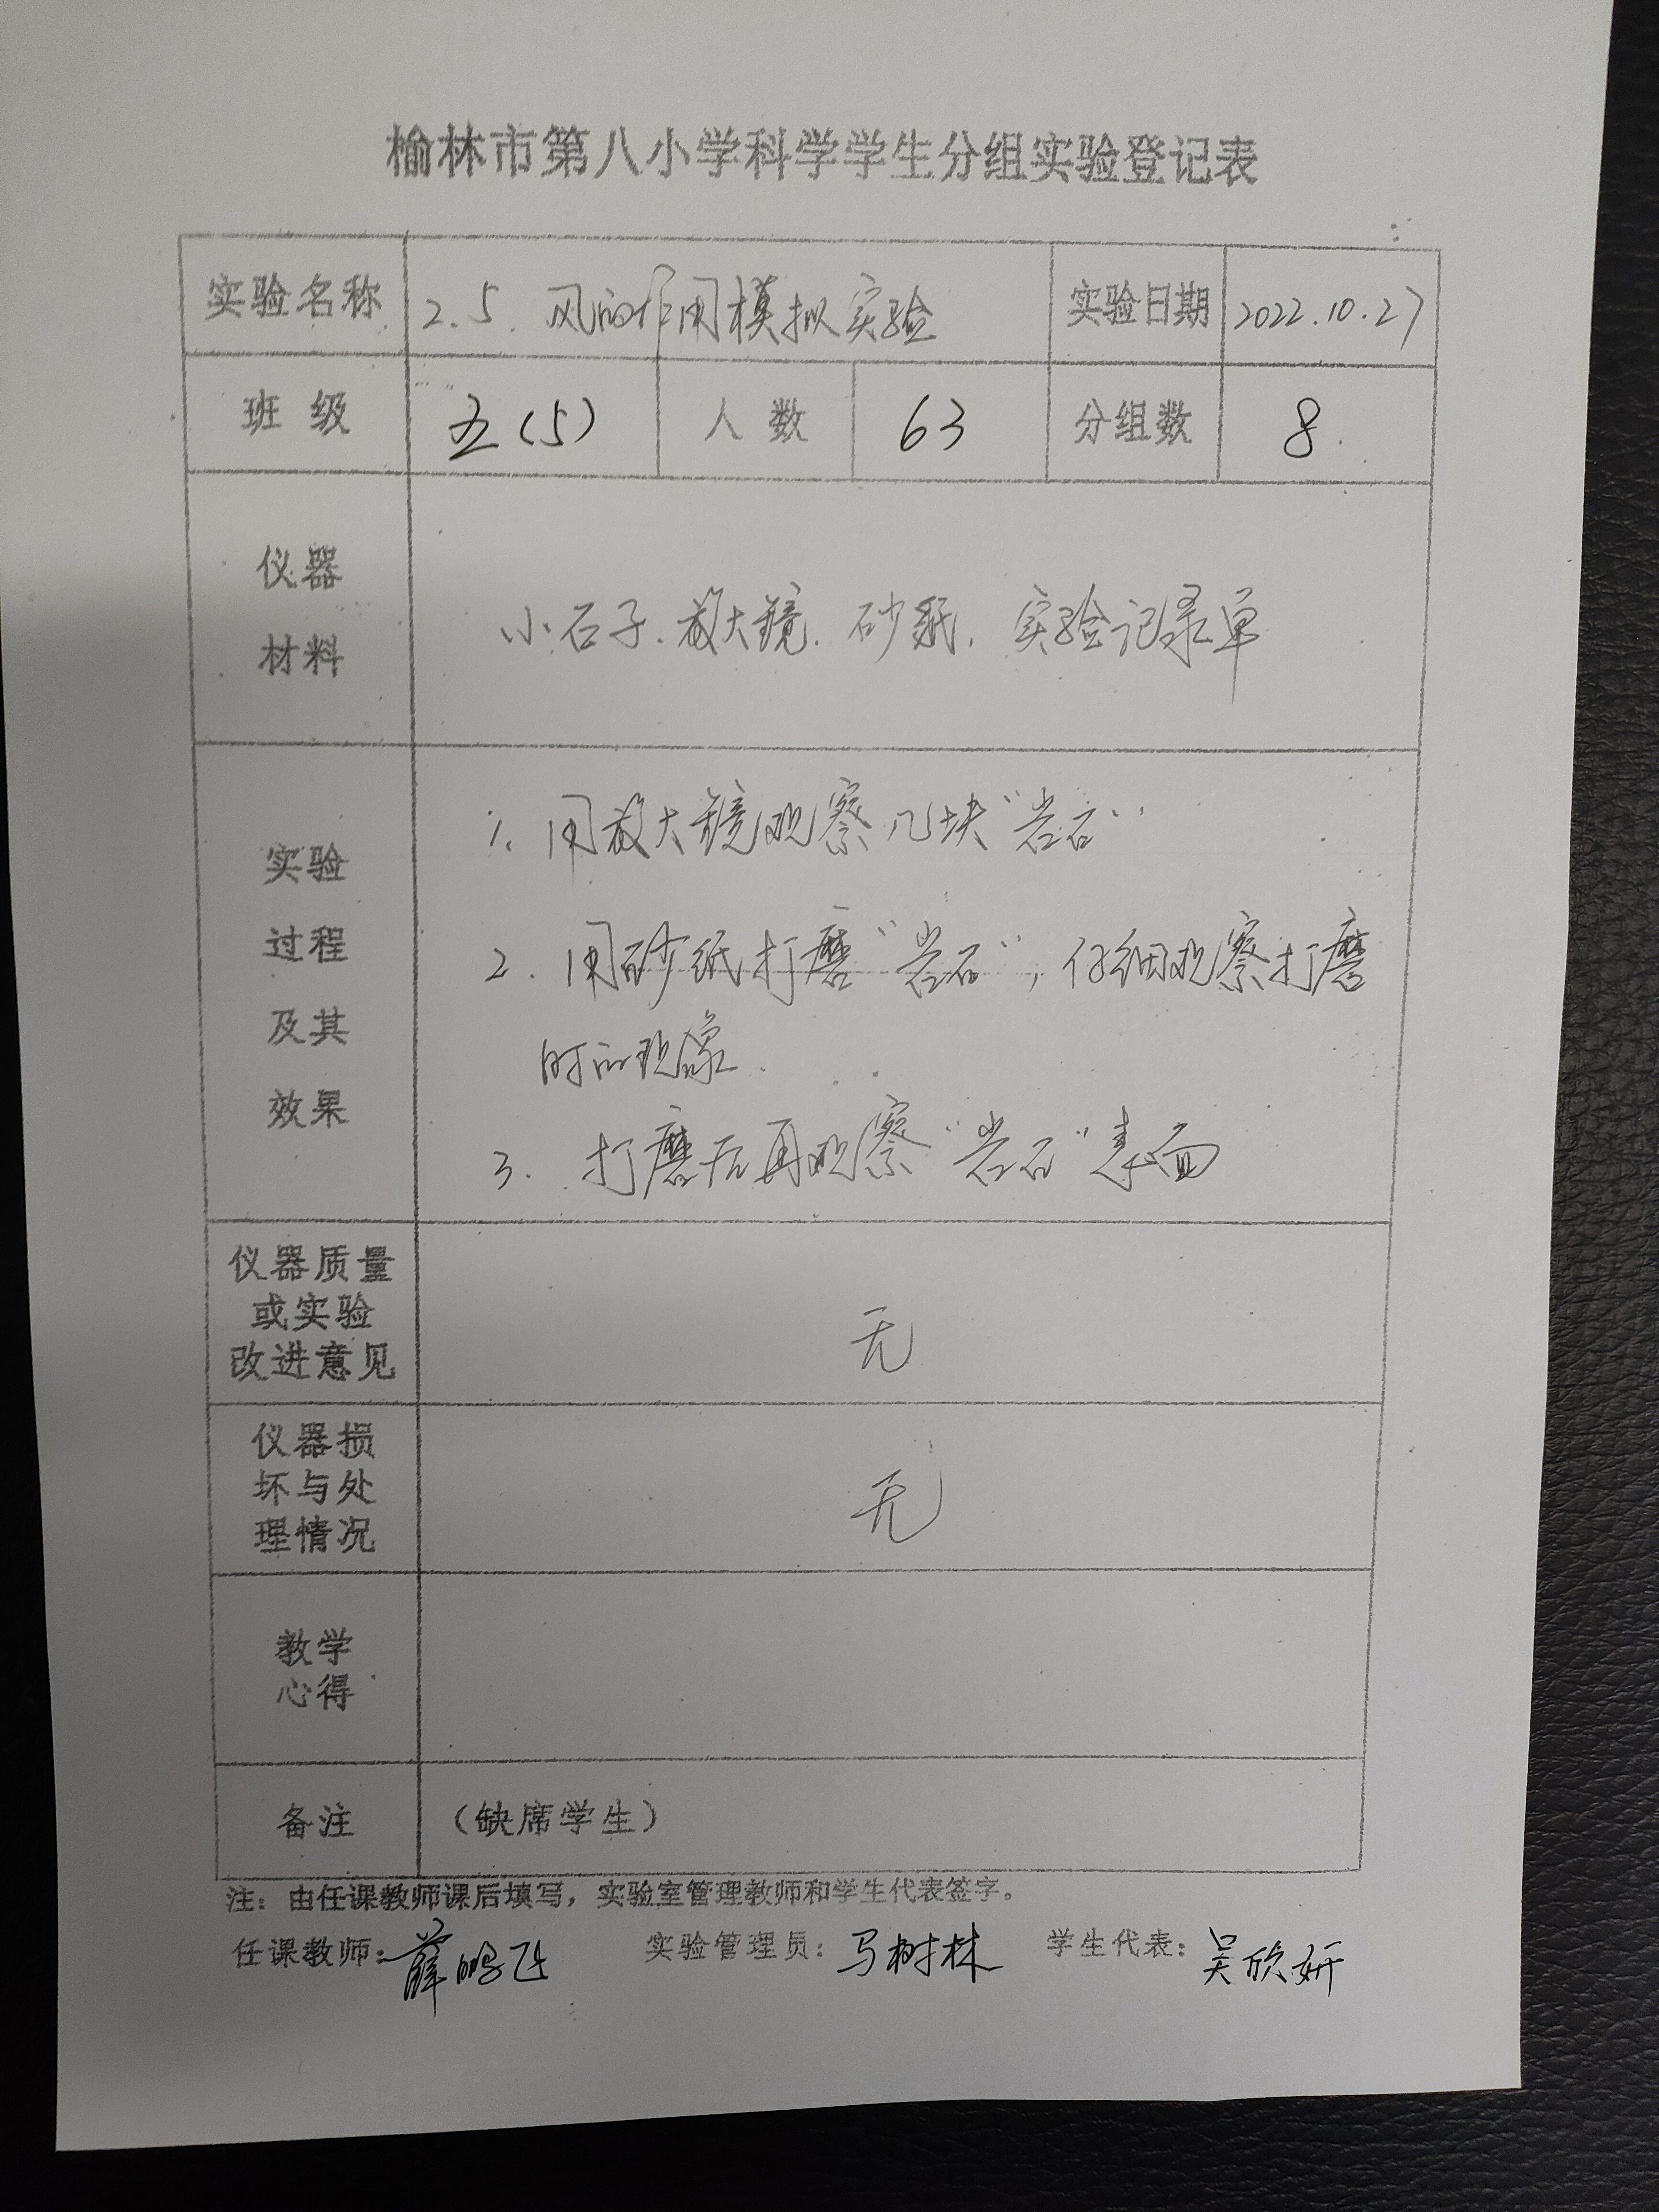 榆林市第八小学科学学生分组实验登记表
实验名称 2.5. 风的作用模拟实验 实验日期 2022.10.27
班级 五(5) 人数 63 分组数 8.
仪器
材料
小石子. 放大镜. 砂纸. 实验记录单
实验
过程
及其
效果
1. 用放大镜观察几块"岩石"
2. 用砂纸打磨"岩石", 仔细观察打磨
时的现象.
3. 打磨后再观察"岩石"表面
仪器质量
或实验
改进意见
无
仪器损
坏与处
理情况
无
教学
心得
备注 (缺席学生)
注：由任课教师课后填写，实验室管理教师和学生代表签字。
任课教师：薛鹏飞 实验管理员：马树林 学生代表：吴欣妍